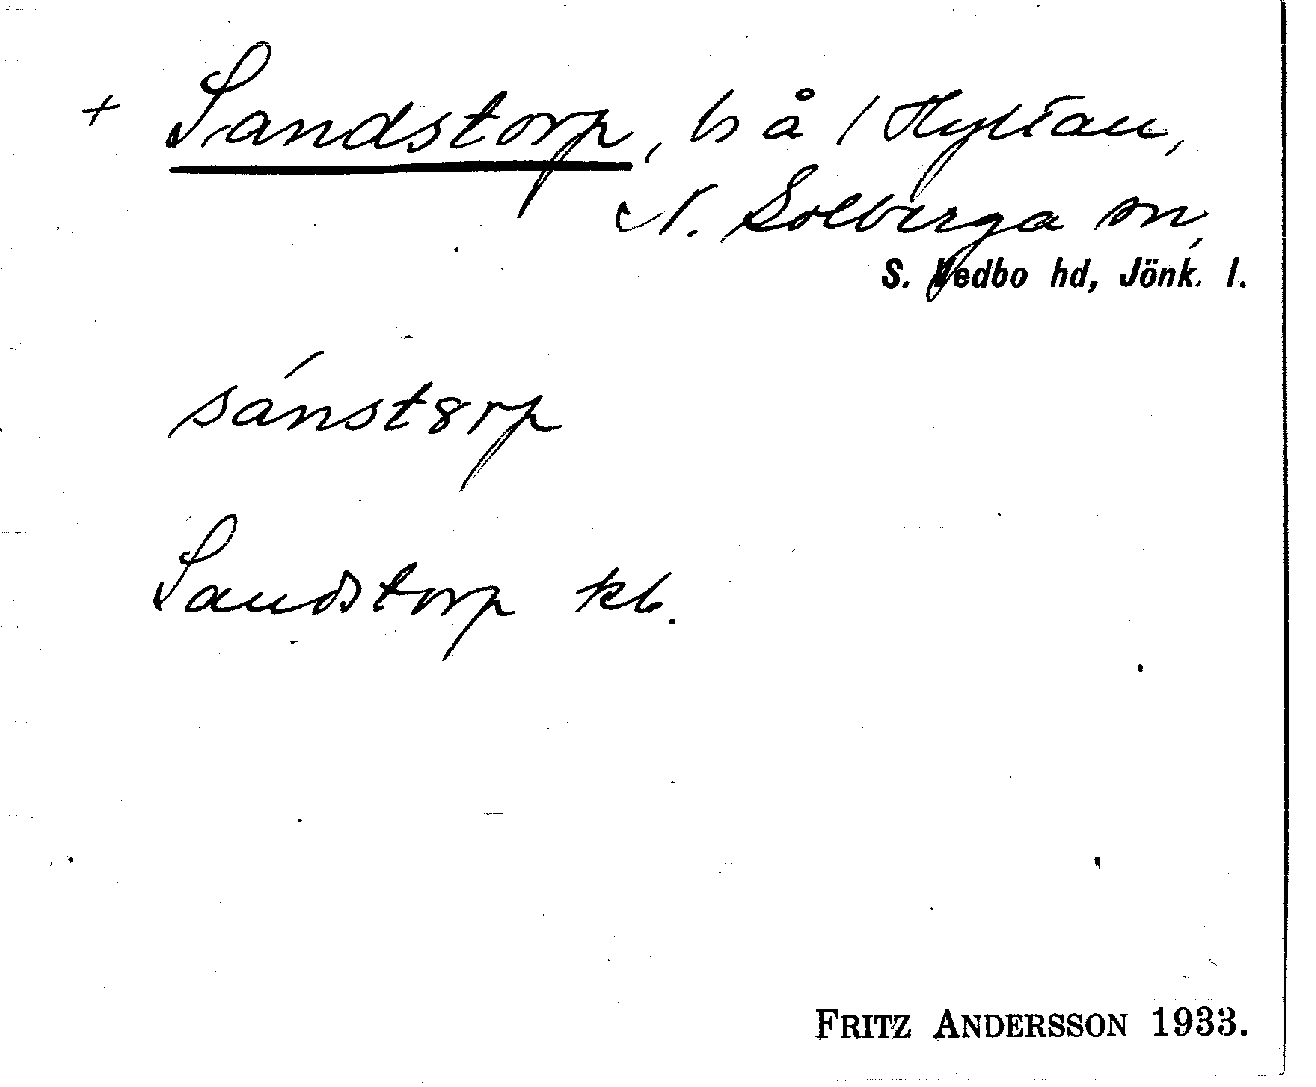 + Sandstorp, ls å / Hyltan,
N. Solberga sn,
S. Vedbo hd, Jönk. l.
sánst8rp
Sandstorp kb.
FRITZ ANDERSSON 1933.